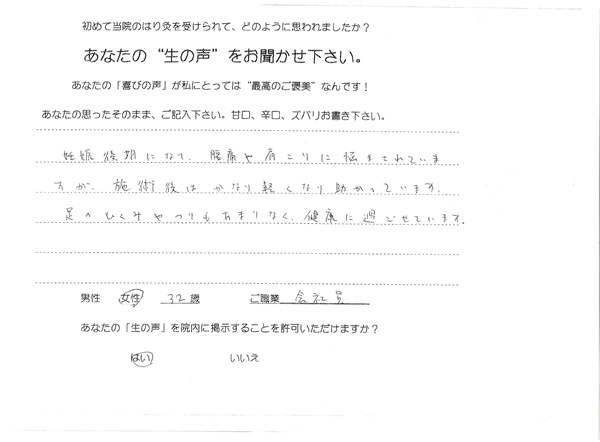 初めて当院のはり灸を受けられて、どのように思われましたか？
あなたの“生の声”をお聞かせ下さい。
あなたの「喜びの声」が私にとっては“最高のご褒美”なんです！
あなたの思ったそのまま、ご記入下さい。甘口、辛口、ズバリお書き下さい。
妊娠後期になり、腰痛や肩こりに悩まされていま
すが、施術後はかなり軽くなり助かっています。
足のむくみやつりもあまりなく、健康に過ごせています。
男性 女性 32歳 ご職業 会社員
あなたの「生の声」を院内に掲示することを許可いただけますか？
はい いいえ